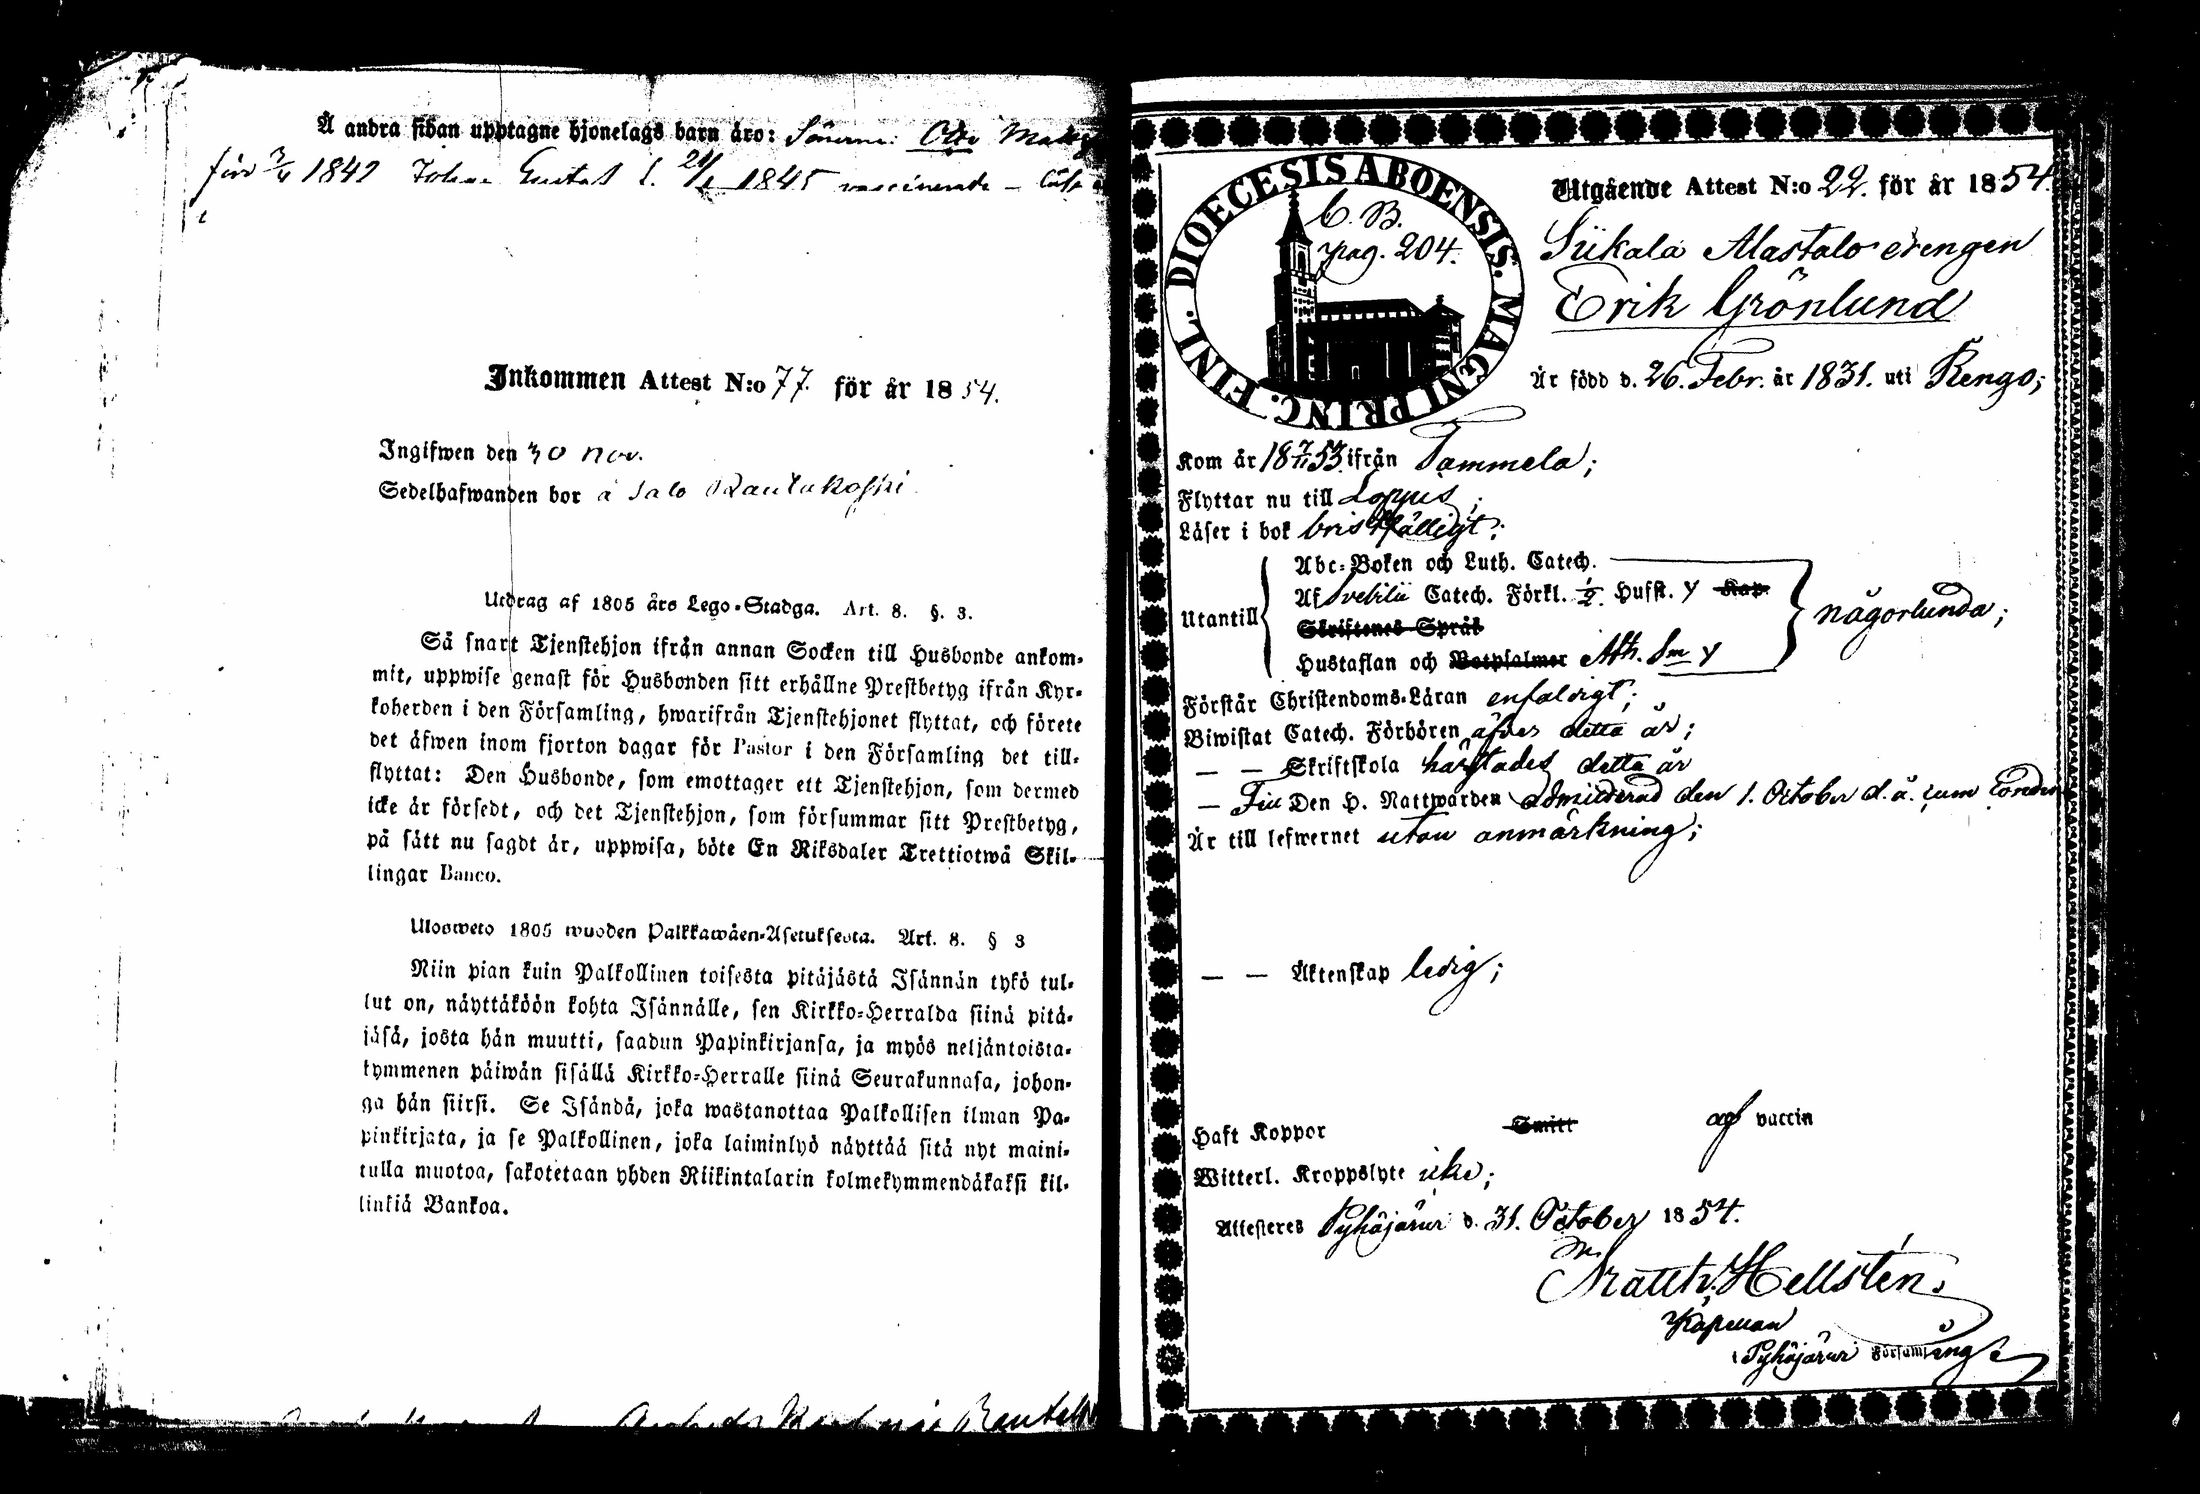 Å andra sidan upptagne hjonelags barn äro: Sönerne: Otto
1842 Johan Gustaf f. 1845 vaccinerade —
Inkommen Attest N:o 77. för år 1854.
Ingifwen den 30 Nov.
Sedelhafwanden bor å Salo Rautakoski
Utdrag af 1805 års Lego-Stadga. Art. 8. §. 3.
Så snart Tjenstehjon ifrån annan Socken till Husbonde ankom-
mit, uppwise genast för Husbonden sitt erhållne Prestbetyg ifrån Kyr-
koherden i den Församling, hwarifrån Tjenstehjonet flyttat, och förete
det äfwen inom fjorton dagar för Pastor i den Församling det till-
flyttat: Den Husbonde, som emottager ett Tjenstehjon, som dermed
icke är försedt, och det Tjenstehjon, som försummar sitt Prestbetyg,
på sätt nu sagdt är, uppwisa, böte En Riksdaler Trettiotwå Skil-
lingar Banco.
Ulosweto 1805 wuoden Palkkawäen-Asetuksesta. Art. 8. § 3
Niin pian kuin Palkollinen toisesta pitäjästä Isännän tykö tul-
lut on, näyttäköön kohta Isännälle, sen Kirkko-Herralda siinä pitä-
jäsä, josta hän muutti, saadun Papinkirjansa, ja myös neljäntoista-
kymmenen päiwän sisällä Kirkko-Herralle siinä Seurakunnasa, johon-
ga hän siirsi. Se Isändä, joka wastanottaa Palkollisen ilman Pa-
pinkirjata, ja se Palkollinen, joka laiminlyö näyttää sitä nyt maini-
tulla muotoa, sakotetaan yhden Riikintalarin kolmekymmendäkaksi kil-
linkiä Bankoa.
DIOECESIS ABOENSIS. MAGNI PRINC. FINL.
C. B.
pag. 204.
Utgående Attest N:o 22. för år 1854.
Siikala Alastalo drengen
Erik Grönlund
Är född d. 26. Febr. år 1831. uti Rengo;
Kom år 18 7/11 53. ifrån Tammela;
Flyttar nu till Loppis;
Läser i bok bristfälligt;
Abc-Boken och Luth. Catech.
Utantill Af Svebilii Catech. Förkl. 1/2. Husst. y Kap. någorlunda;
Skriftenes Språk
Hustaflan och Botpsalmer Ath. Sm y
Förstår Christendoms-Läran enfaldigt;
Biwistat Catech. Förhören äfven detta år;
— — Skriftskola härstädes detta år
— Till Den H. Nattwarden admitterad den 1. October d. å.
Är till lefwernet utan anmärkning;
— — Äktenskap ledig;
Haft Koppor Smitt af vaccin
Witterl. Kroppslyte icke;
Attesteres Pyhäjärvi d. 31. October 1854.
Matth. Hellstén.
Kapellan
Pyhäjärvi Församling